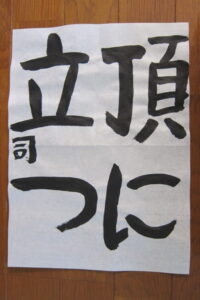 頂に
立つ
司